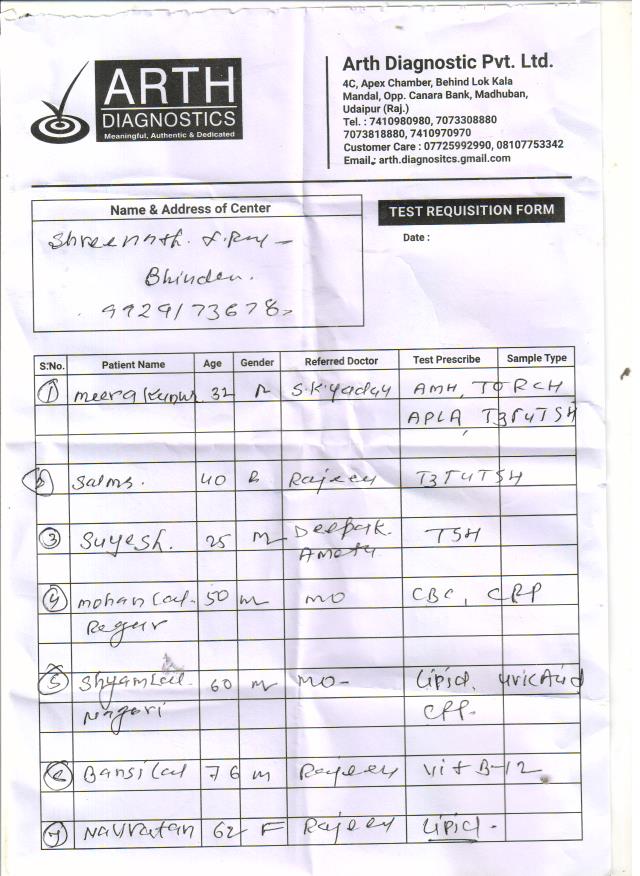 ARTH
DIAGNOSTICS
Meaningful, Authentic & Dedicated
Arth Diagnostic Pvt. Ltd.
4C, Apex Chamber, Behind Lok Kala
Mandal, Opp. Canara Bank, Madhuban,
Udaipur (Raj.)
Tel. : 7410980980, 7073308880
7073818880, 7410970970
Customer Care : 07725992990, 08107753342
Email.: arth.diagnositcs.gmail.com
Name & Address of Center
TEST REQUISITION FORM
Date :
Shreenath
Bhinder.
9929173678
S.No. Patient Name Age Gender Referred Doctor Test Prescribe Sample Type
1 Meera 32 S.K. yadav AMH, TORCH
APLA, T3T4TSH
Salma. 40 Rajeev T3T4TSH
3 Suyesh. 25 M Deepak TSH
Ameta
4 mohanlal 50 m mo CBC, CRP
Regur
5 Shyamlal 60 m mo- Lipid, Uric Acid
Nagori CRP.
6 Bansilal 76 m Rajeev Vit B-12
7 Navratan 62 F Rajeev Lipid -